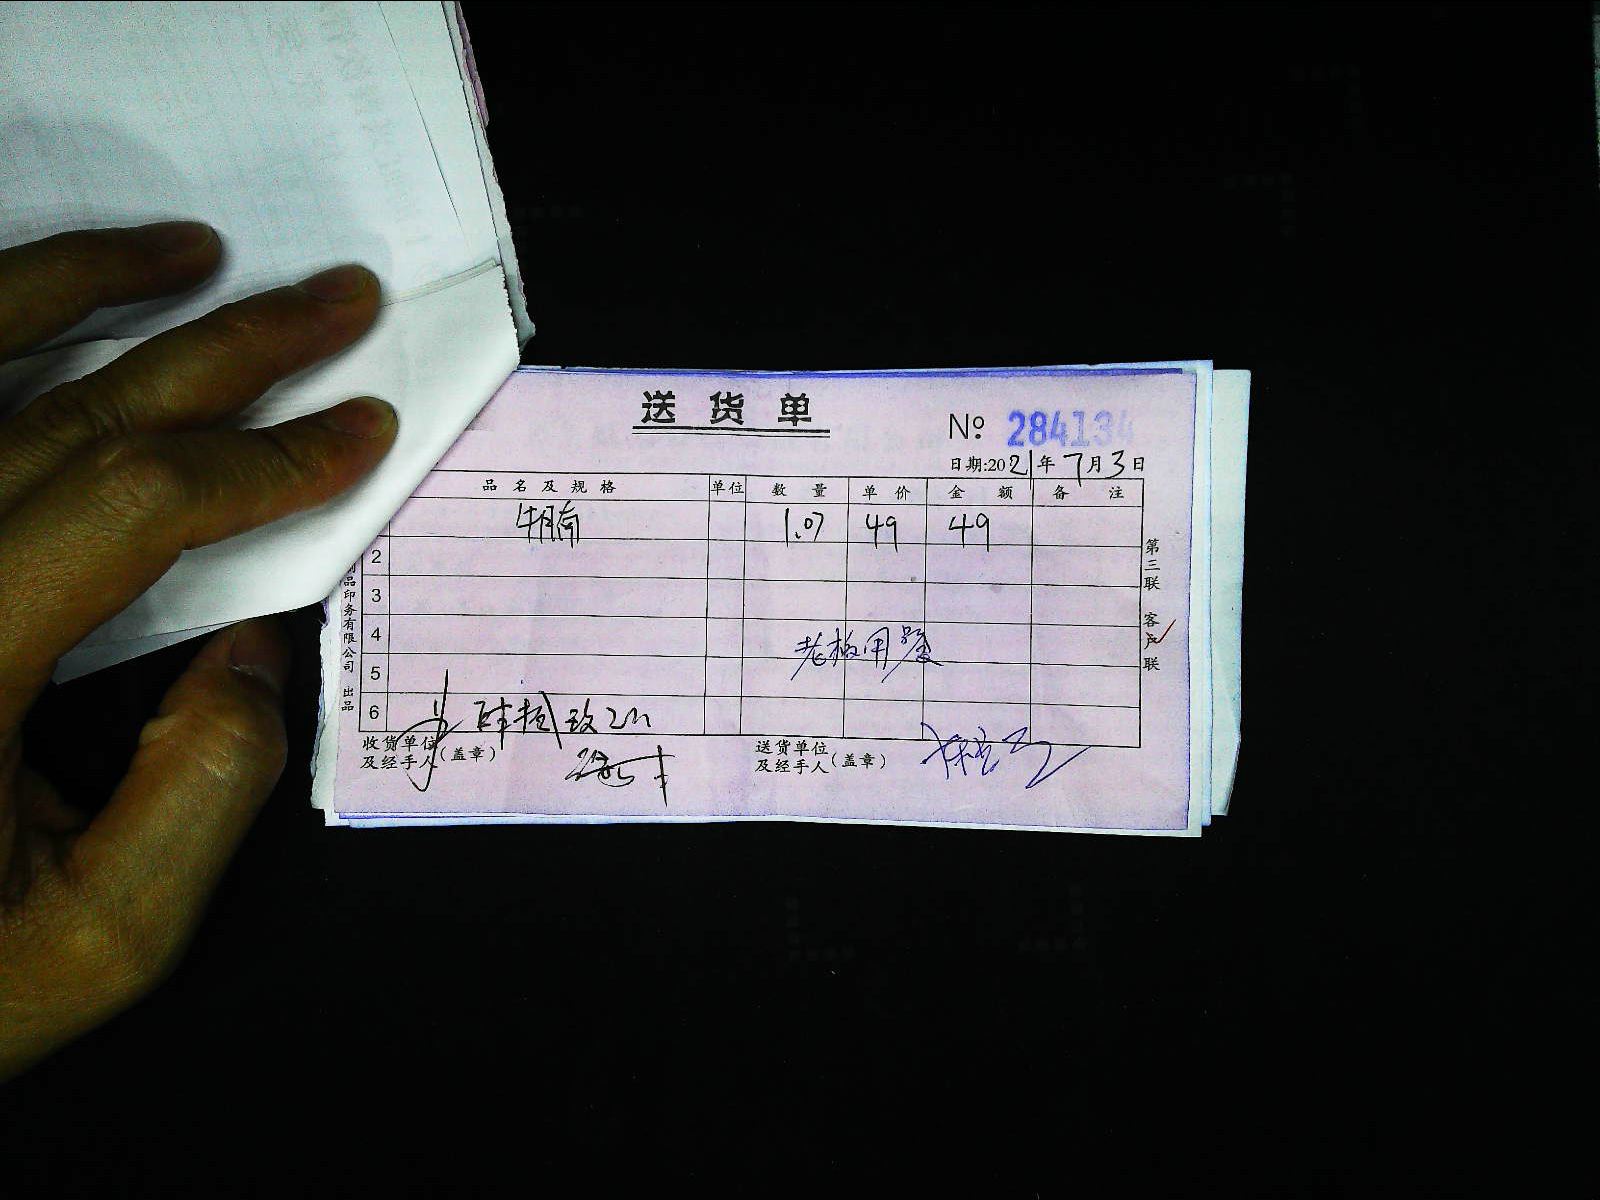 送货单
№ 284134
日期:2021年7月3日
品名及规格 单位 数量 单价 金额 备注
牛腩 1.07 49 49
2
3
4
老板用餐
5
6
收货单位及经手人(盖章)
送货单位及经手人(盖章)
第三联 客户联
品印务有限公司 出品